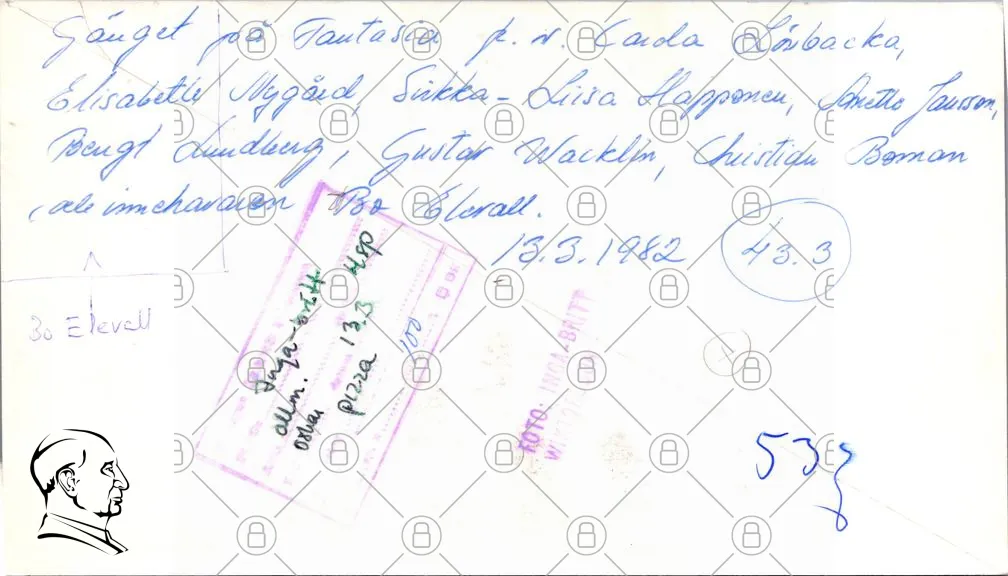 Gänget på Fantasia fr. v. Carola Lönbacka,
Elisabette Nygård, Sirkka-Liisa Happonen, Anette Jansson,
Bengt Lundberg, Gustav Wacklin, Christian Boman
, och innehavaren Bo Elevall.
13.3.1982 43.3
Bo Elevall
Inga-Britt
allm.
pizza 13.3 Hsp
100
FOTO: INGA-BRITT
x
53